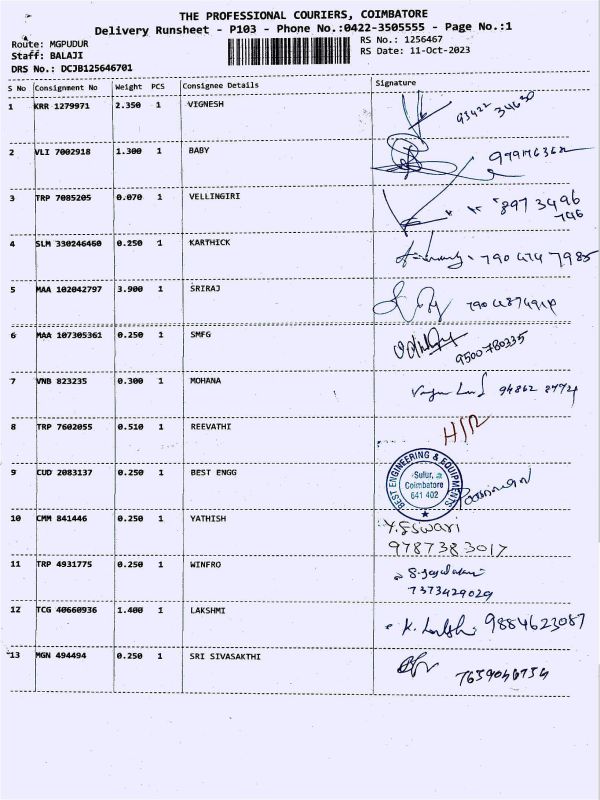 THE PROFESSIONAL COURIERS, COIMBATORE
Delivery Runsheet - P103 - Phone No.:0422-3505555 - Page No.:1
Route: MGPUDUR RS No.: 1256467
Staff: BALAJI RS Date: 11-Oct-2023
DRS No.: DCJB125646701
S No Consignment No Weight PCS Consignee Details Signature
1 KRR 1279971 2.350 1 VIGNESH 93422 34630
2 VLI 7002918 1.300 1 BABY
3 TRP 7085205 0.070 1 VELLINGIRI 8973496
746
4 SLM 330246460 0.250 1 KARTHICK 790 474 7985
5 MAA 102042797 3.900 1 SRIRAJ
6 MAA 107305361 0.250 1 SMFG 9500780335
7 VNB 823235 0.300 1 MOHANA
8 TRP 7602055 0.510 1 REEVATHI
9 CUD 2083137 0.250 1 BEST ENGG
BEST ENGINEERING & EQUIPMENTS
Sulur,
Coimbatore
641 402
10 CMM 841446 0.250 1 YATHISH Y. Eswari
9787383017
11 TRP 4931775 0.250 1 WINFRO
7373429029
12 TCG 40660936 1.400 1 LAKSHMI 9884623087
13 MGN 494494 0.250 1 SRI SIVASAKTHI